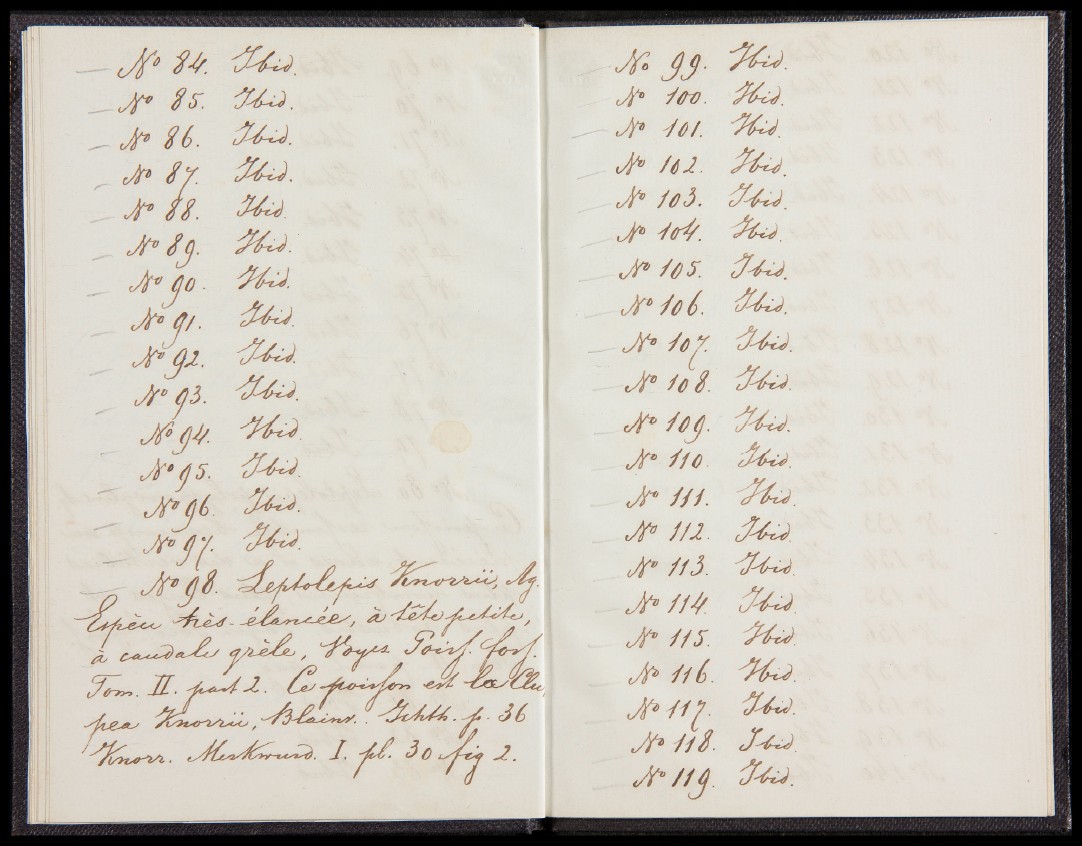 — No 84. Ibid.
— No 85. Ibid.
— No 86. Ibid.
— No 87. Ibid.
— No 88. Ibid.
— No 89. Ibid.
— No 90. Ibid.
— No 91. Ibid.
— No 92. Ibid.
— No 93. Ibid.
— No 94. Ibid.
— No 95. Ibid.
— No 96. Ibid.
— No 97. Ibid.
— No 98. Leptolepis Knorrii, Ag.
Espèce très-élancée, à tête petite,
à caudale grèle, Voyez. Poiss. foss.
Tom. II. part 2. Ce poisson est la Clu,
pea Knorrii, Blainv. Ichth. p. 36
Knorr. Merkwurd. I. pl. 30 fig 2.
— No 99. Ibid.
— No 100. Ibid.
— No 101. Ibid.
— No 102. Ibid.
— No 103. Ibid.
— No 104. Ibid.
— No 105. Ibid.
— No 106. Ibid.
— No 107. Ibid.
— No 108. Ibid.
— No 109. Ibid.
— No 110. Ibid.
— No 111. Ibid.
— No 112. Ibid.
— No 113. Ibid.
— No 114. Ibid.
— No 115. Ibid.
— No 116. Ibid.
— No 117. Ibid.
— No 118. Ibid.
— No 119. Ibid.